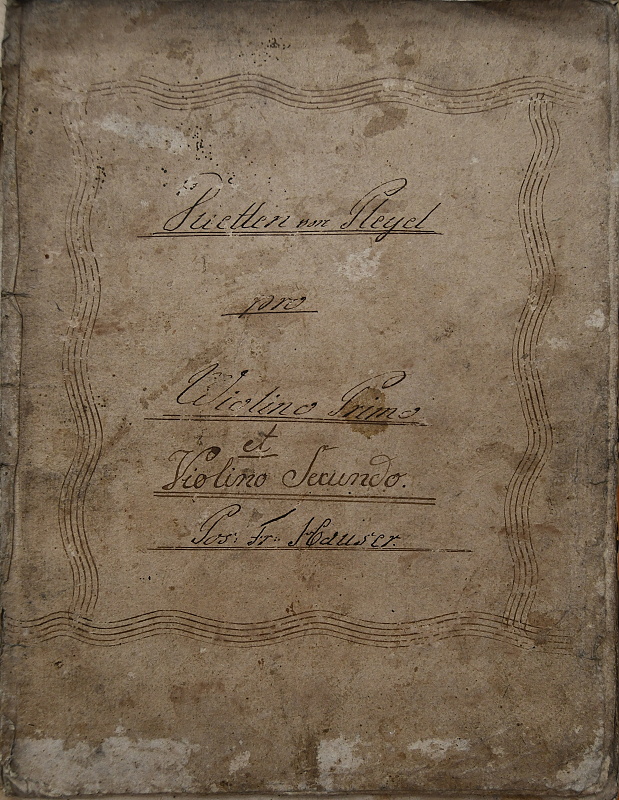 Duetten von Pleyel
pro
Violino Primo
et
Violino Secundo.
Jos: Fr: Hauser.